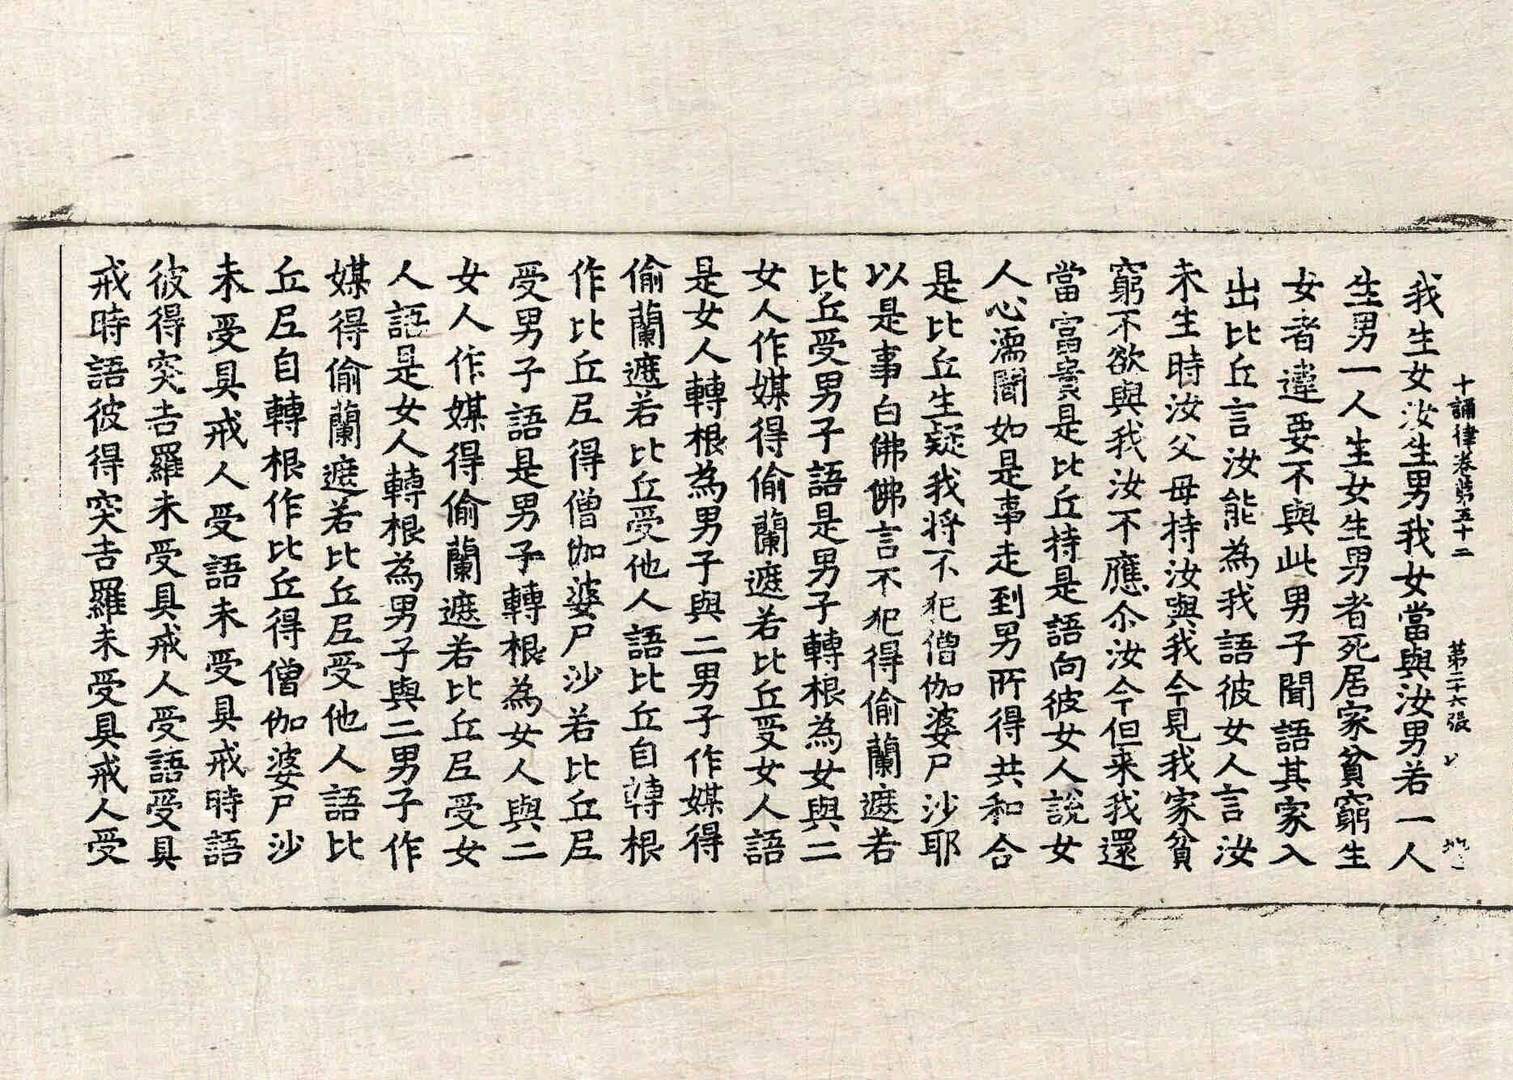 十誦律卷第五十二 第二十六張
我生女汝生男我女當與汝男若一人
生男一人生女生男者死居家貧窮生
女者違要不與此男子聞語其家入
出比丘言汝能為我語彼女人言汝
未生時汝父母持汝與我今見我家貧
窮不欲與我汝不應尒汝今但来我還
當富貴是比丘持是語向彼女人說女
人心濡聞如是事走到男所得共和合
是比丘生疑我将不犯僧伽婆尸沙耶
以是事白佛佛言不犯得偷蘭遮若
比丘受男子語是男子轉根為女與二
女人作媒得偷蘭遮若比丘受女人語
是女人轉根為男子與二男子作媒得
偷蘭遮若比丘受他人語比丘自轉根
作比丘尼得僧伽婆尸沙若比丘尼
受男子語是男子轉根為女人與二
女人作媒得偷蘭遮若比丘尼受女
人語是女人轉根為男子與二男子作
媒得偷蘭遮若比丘尼受他人語比
丘尼自轉根作比丘得僧伽婆尸沙
未受具戒人受語未受具戒時語
彼得突吉羅未受具戒人受語受具
戒時語彼得突吉羅未受具戒人受